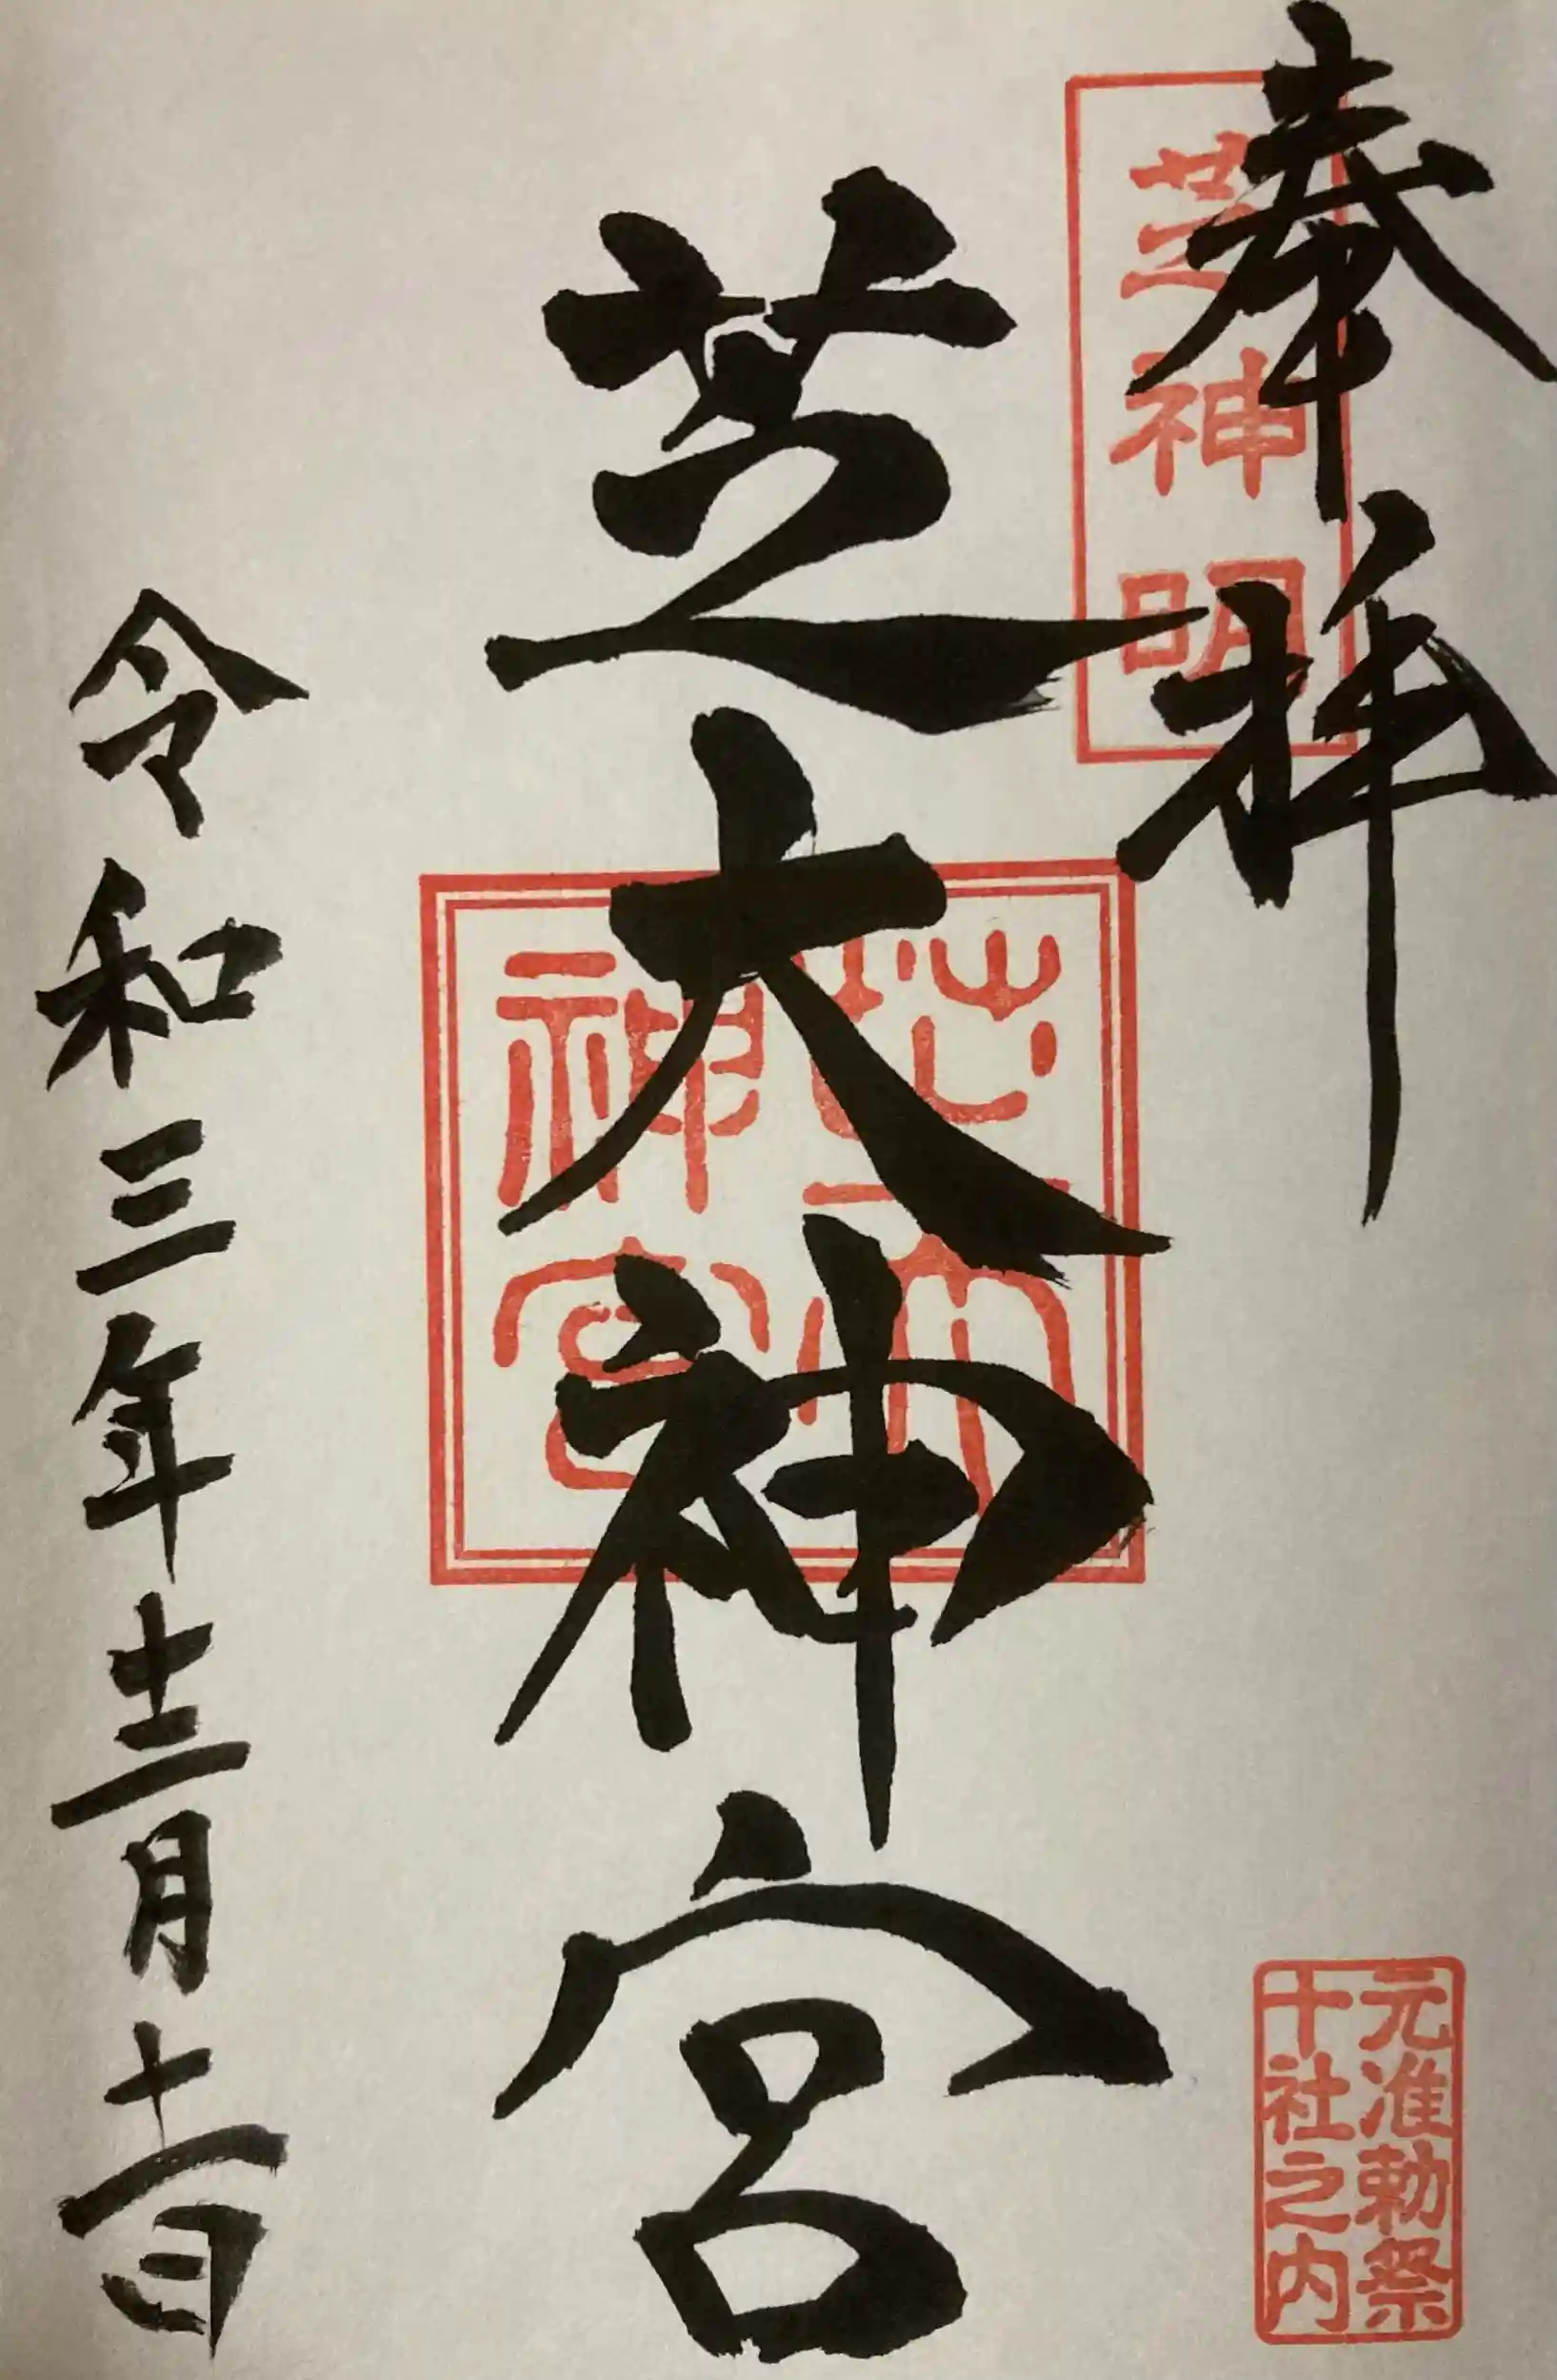 奉拝
芝神明
芝大神宮
芝大
神宮
令和三年十二月十一日
元准勅祭
十社之内